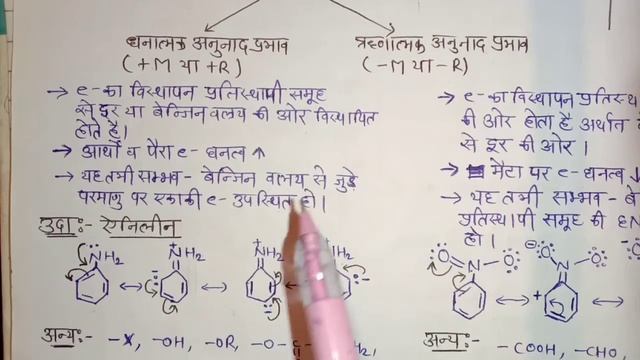 धनात्मक अनुनाद प्रभाव
(+M या +R)
→ e- का विस्थापन प्रतिस्थापी समूह
से दूर या बेन्जिन वलय की ओर विस्थापित
होते है।
→ आर्थो व पैरा e- धनत्व ↑
→ यह तभी सम्भव - बेन्जिन वलय से जुड़े
परमाणु पर एकाकी e- उपस्थित हो।
उदा:- ऐनिलीन
NH₂ ↔ NH₂ ↔ NH₂ NH₂
अन्य:- -X, -OH, -OR, -O-C
ऋणात्मक अनुनाद प्रभाव
(-M या -R)
→ e- का विस्थापन प्रतिस्थ
की ओर होता है अर्थात
से दूर की ओर।
→ मैटा पर e- धनत्व ↓
→ यह तभी सम्भव - बे
प्रतिस्थापी समूह की EN
हो।
O N O ↔ O N O ↔
अन्य:- -COOH, -CHO,